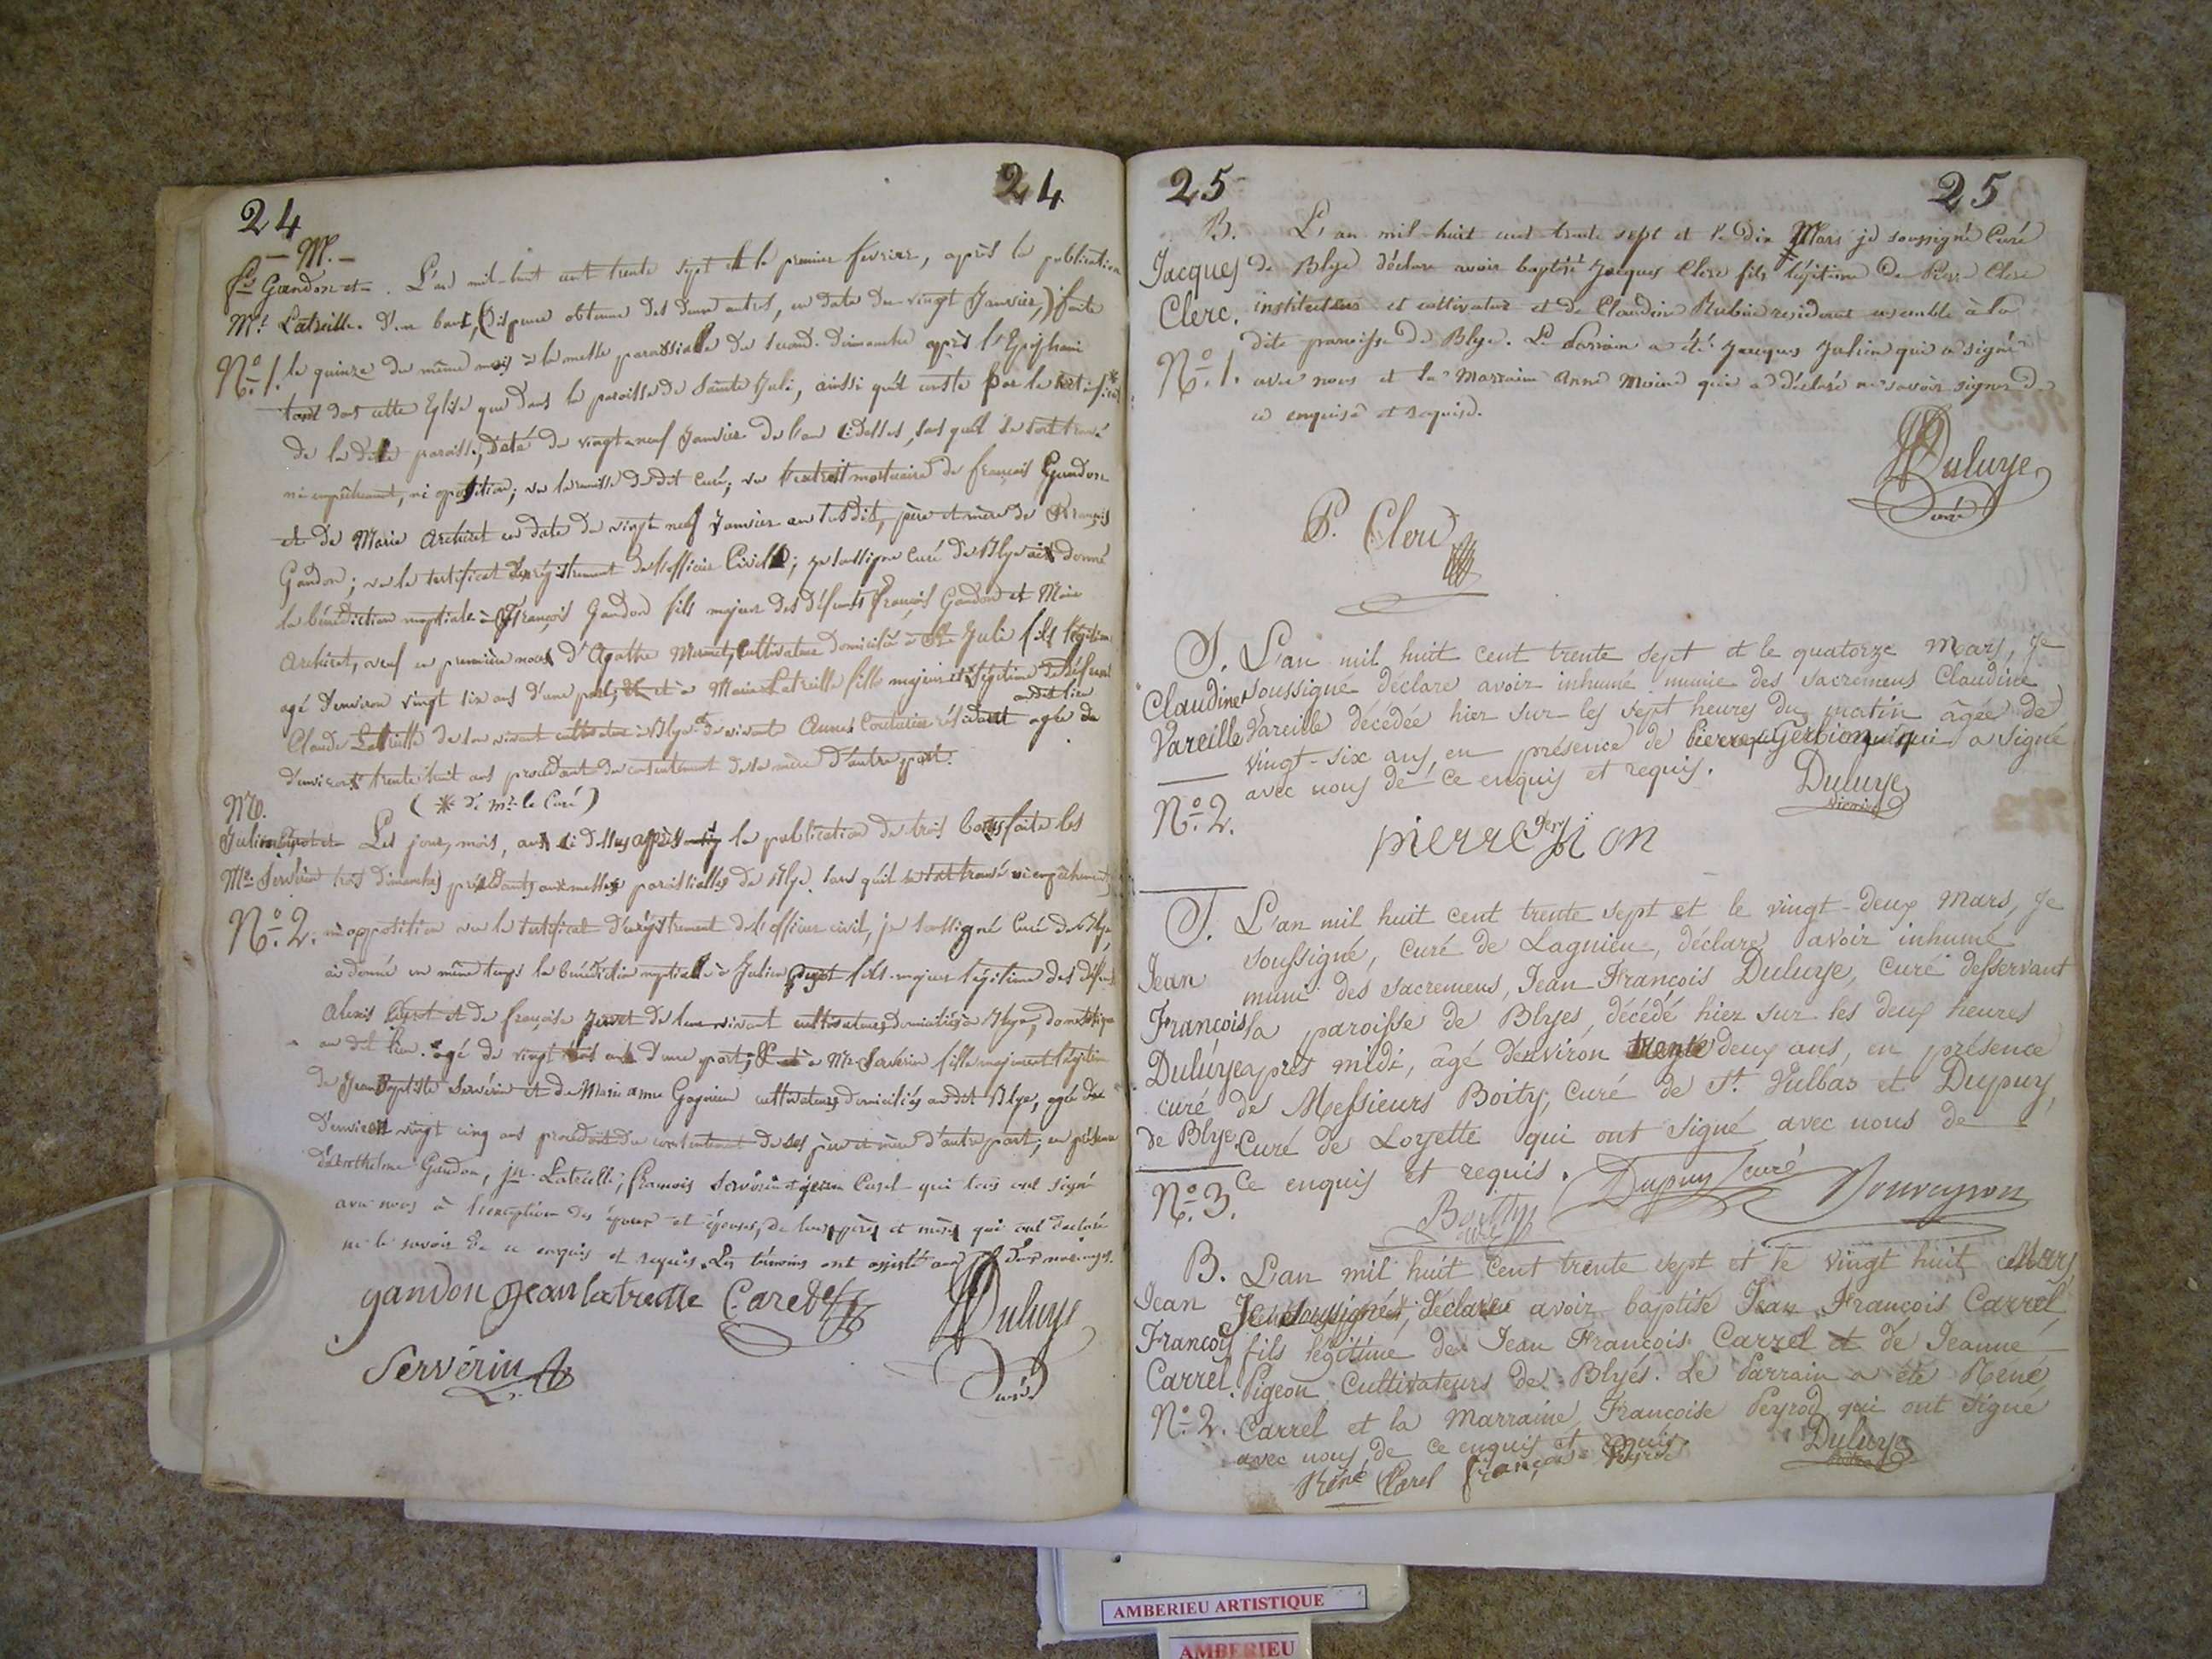 24
24
— M. —
fs Gandon et L'an mil-huit cent trente sept et le premier fevrier, après la publication
Mie Latreille. d'un banc, (dispense obtenue des deux autres, en date du vingt Janvier,) faite
No. 1. le quinze du même mois à la messe paroissiale du second dimanche après l'Epiphanie
tant dans cette Eglise que dans la paroisse de Sainte Juli, ainsi qu'il conste par le certificat*
de la dite paroisse, daté du vingt-neuf Janvier de l'an ci dessus, sans qu'il se soit trouvé
ni empêchement, ni opposition; vu la remise du dit curé; vu l'extrait mortuaire de françois Gandon
et de Marie Archiret en date du vingt neuf Janvier an susdit, père et mère de François
Gandon; vu le certificat d'enregistrement de l'officier Civil; je soussigné Curé de Blye ai donné
la bénédiction nuptiale à François Gandon fils majeur des défunts françois Gandon et Marie
Archiret, veuf en première noces d'Agathe Mermet, cultivateur domicilié à Ste Juli fils légitime
agé d'environ vingt six ans d'une part; et à Marie Latreille fille majeure et légitime de défunt
Claude Latreille de son vivant cultivateur à Blye et de vivante résidante au dit lieu agée de
d'environ trente huit ans procédant du consentement de sa mère d'autre part.
(* de mr. le Curé)
M.
Julien et Les jour, mois, an ci dessus après la publication de trois bans faite les
Mie Servérin trois dimanches précédants aux messes paroissialles de Blye, sans qu'il se soit trouvé ni empêchement
No. 2. ni opposition vu le certificat d'enregistrement de l'officier civil, je soussigné Curé de Blye,
ai donné en même temps la bénédiction nuptialle à Julien fils majeur légitime des défunts
Alexis et de françoise de leur vivant cultivateurs domiciliés à Blye, domestique
au dit lieu, agé de vingt trois ans d'une part; et à Mie Servérin fille majeure et légitime
de Jean Baptiste Servérin et de Marie anne cultivateurs domiciliés au dit Blye, agée de
d'environ vingt cinq ans procédant du consentement de ses père et mère d'autre part; en présence
de Barthelme Gandon, jn Latreille, francois Servérin et Carel qui tous ont signé
avec nous à l'exception des époux et épouses, de leurs pères et mères qui ont déclaré
ne le savoir de ce enquis et requis. Les témoins ont assisté aux deux mariages.
gandon jean latreille Carel Duluye
Servérin Curé
25
25
B. L'an mil-huit cent trente sept et le dix Mars je soussigné Curé
Jacques de Blye déclare avoir baptisé Jacques Clerc fils légitime de Pierre Clerc
Clerc. instituteur et cultivateur et de Claudine Rubin résidents ensemble à la
No. 1. dite paroisse de Blye. Le Parrain a été Jacques Julien qui a signé
avec nous et la Marraine Anne Moine qui a déclaré ne savoir signer de
ce enquise et requise.
Duluye
curé
P. Clerc
S. L'an mil huit cent trente sept et le quatorze Mars, Je
Claudine soussigné déclare avoir inhumé munie des sacremens Claudine
Vareille Vareille décédée hier sur les sept heures du matin âgée de
vingt-six ans, en présence de Pierre Gerbion qui a signé
No. 2. avec nous de ce enquis et requis. Duluye
pierre gerbion
S. L'an mil huit cent trente sept et le vingt-deux Mars, Je
soussigné, curé de Lagnieu, déclare avoir inhumé
Jean muni des sacremens, Jean François Duluye, curé desservant
François la paroisse de Blyes, décédé hier sur les deux heures
Duluye après midi, âgé d'environ trente deux ans, en présence
curé de Messieurs Boity, curé de St. Vulbas et Dupuy,
de Blye Curé de Loyette qui ont signé avec nous de
No. 3. ce enquis et requis. Dupuy curé
Boity curé Bouveyron
B. L'an mil huit cent trente sept et le vingt huit Mars,
Jean Je soussigné, déclare avoir baptisé Jean François Carrel,
François fils légitime de Jean François Carrel et de Jeanne
Carrel. Pigeon, Cultivateurs de Blyes. Le Parrain a été René
No. 2. Carrel et la Marraine Françoise Peyrod qui ont signé
avec nous, de ce enquis et requis. Duluye
René Carel françoise Peyrod
AMBERIEU ARTISTIQUE
AMBERIEU